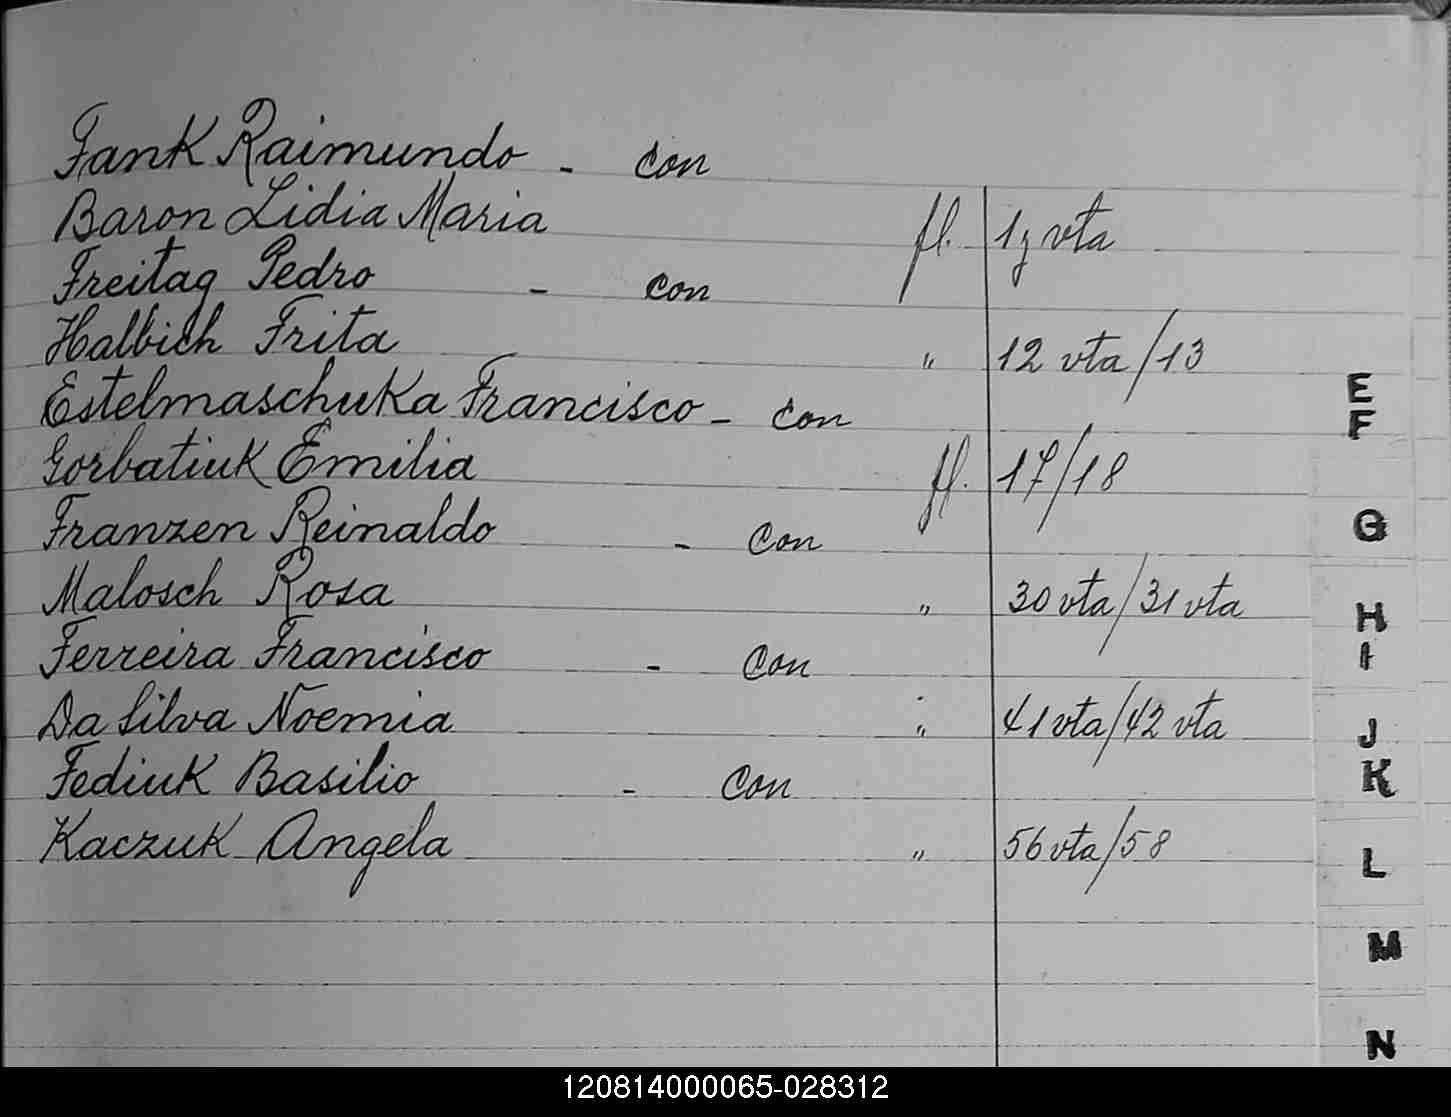 Fank Raimundo - con
Baron Lidia Maria fl. vta
Freitag Pedro - con
Halbich Frita " 12 vta/13
Estelmaschuka Francisco - con
Gorbatiuk Emilia fl. 17/18
Franzen Reinaldo - con
Malosch Rosa " 30 vta/31 vta
Ferreira Francisco - con
Da Silva Noemia " 41 vta/42 vta
Fediuk Basilio - con
Kaczuk Angela " 56 vta/58
E
F
G
H
I
J
K
L
M
N
120814000065-028312